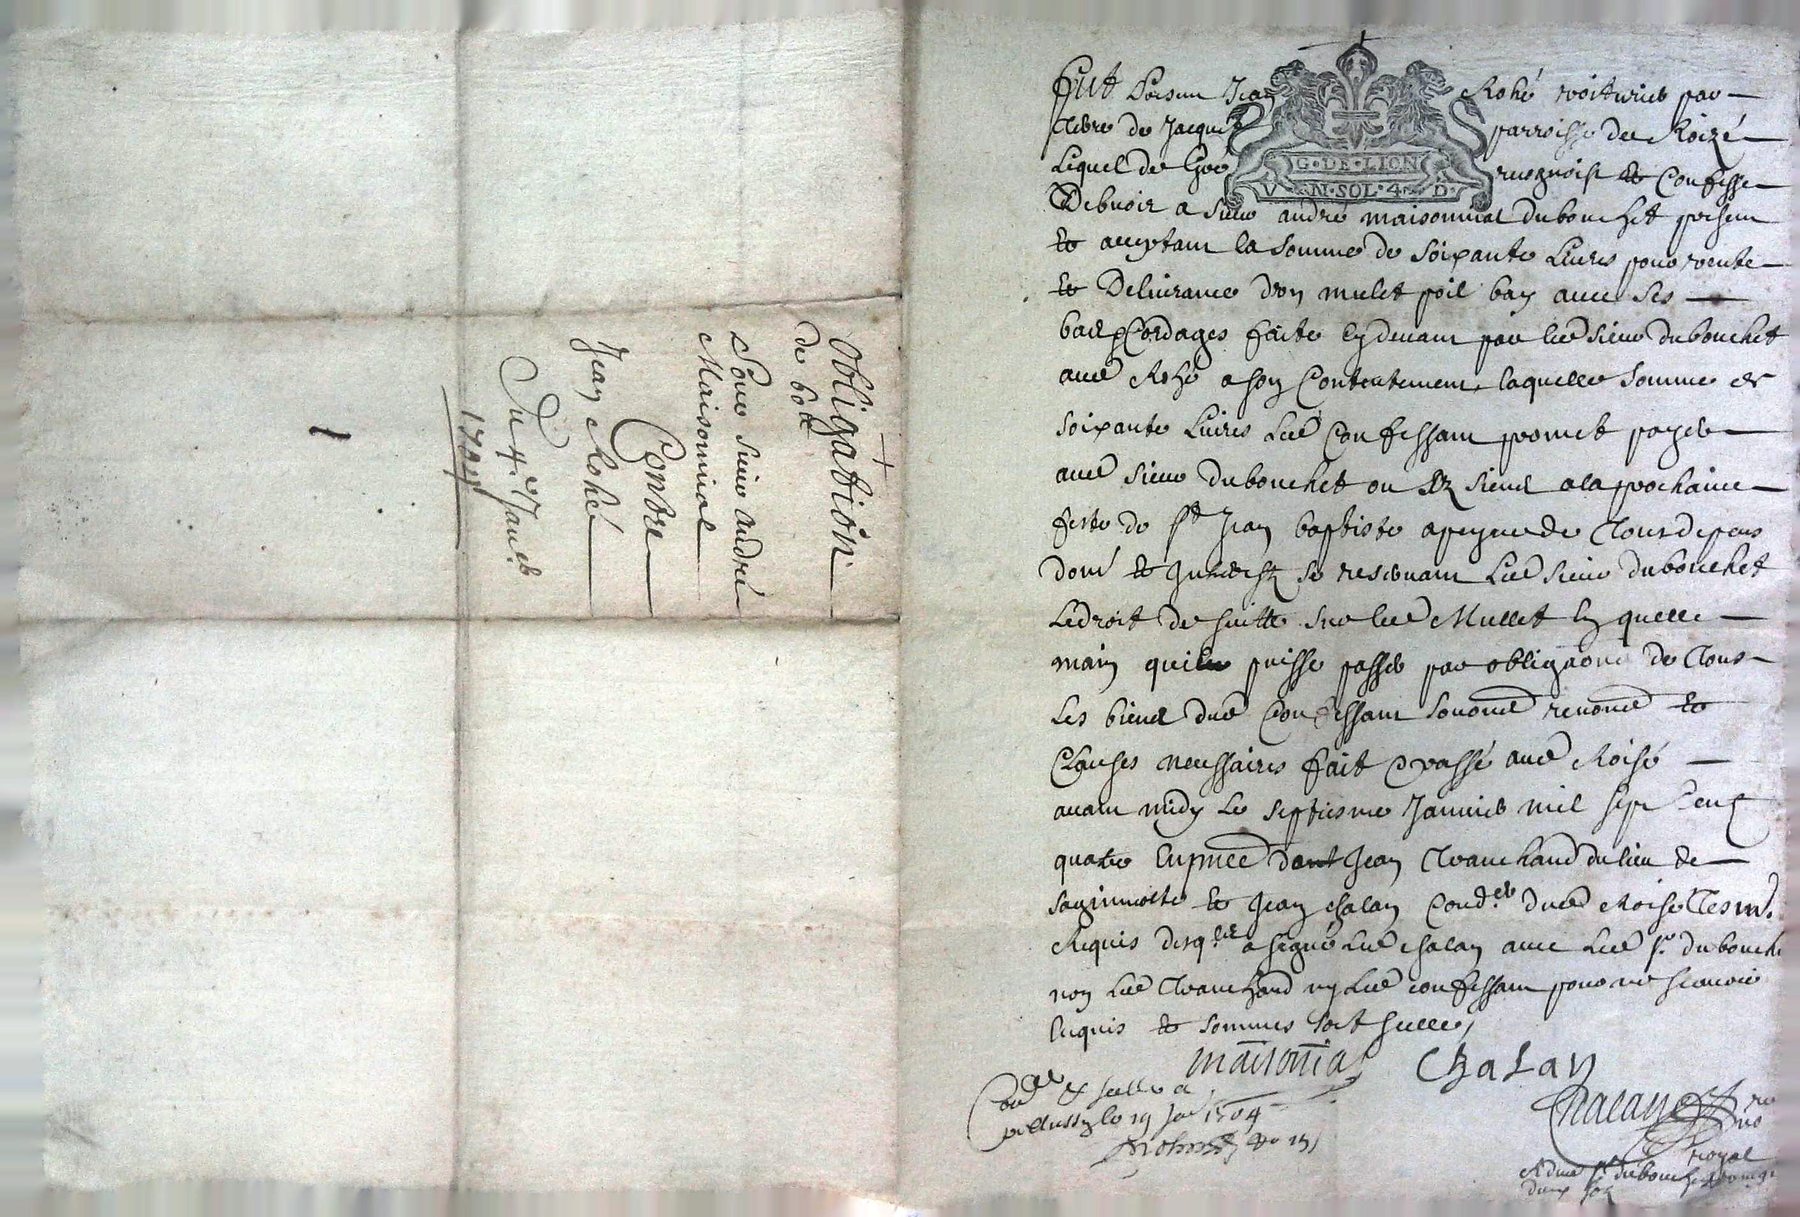 Obligation
de 60ᴸ
Pour sieur andré
Maisonnial
Contre
Jean Rohé
Du 7ᵉ Janᵉʳ
1704
G·DE·LION
V N·SOL·4 D·
fut présent Jean Rohé voiturier par
terre de Jacquet parroisse de Roizé
Lequel de Gré recognoist et Confesse
Debvoir a sieur andré maisonnial dubouchet present
et acceptant la somme de soixante Livres pour vente
et Delivrance d'un mulet poil bay avec ses
bast Cordages faite cydevant par led sieur dubouchet
aud Rohé a son Contentement laquelle somme de
soixante Livres Led Confessant promet payer
aud sieur dubouchet ou aux siens a la prochaine
feste de Sᵗ Jean baptiste a peyne de Tous depens
dom et se reservant Led sieur dubouchet
Ledroit de suitte sur led Mullet En quelle
main quil puisse passer par obligaōns de Tous
Les biens dud Confessant renoncᵈ et
Clauses necessaires fait & passé aud Roisé
avant midy Le septiesme Janvier mil sept Cens
quatre En pñce Jean Tranchand du lieu de
et Jean chalan Cordᵉʳ dud Roisé Tesm.
Requis desqˡˢ a signé Led chalan avec Led sʳ dubouchet
non Led Tranchand ny Led confessant pour ne scavoir
Enquis et sommes soit scellé
maisonial Chalan
Chalan
royal
Conᵉˡ & scellé a
le 19 Jaᵉʳ 1704